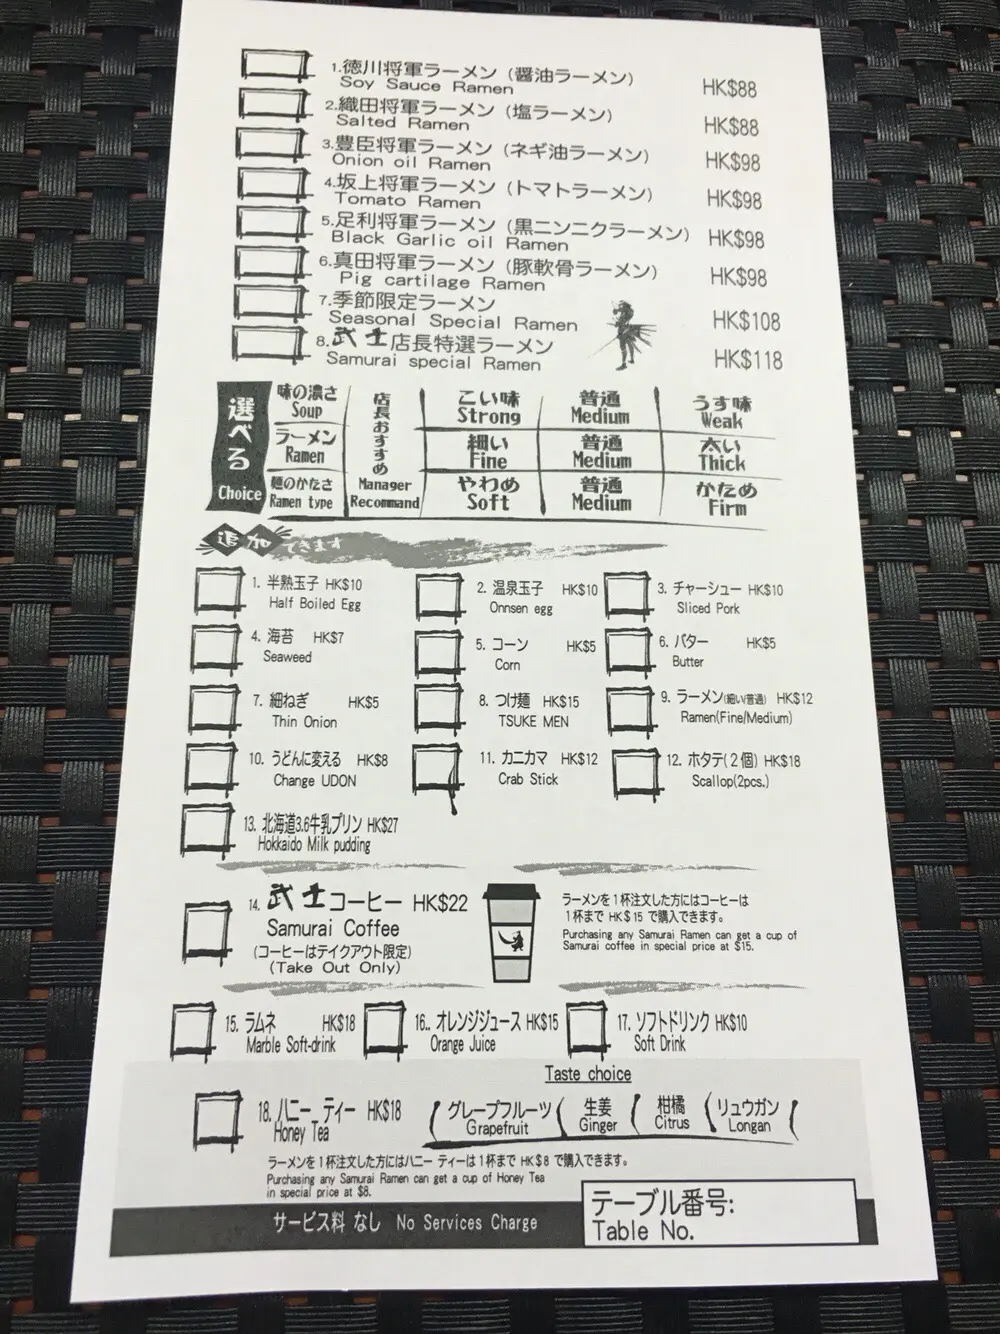 1.徳川将軍ラーメン（醤油ラーメン） HK$88
Soy Sauce Ramen
2.織田将軍ラーメン（塩ラーメン） HK$88
Salted Ramen
3.豊臣将軍ラーメン（ネギ油ラーメン） HK$98
Onion oil Ramen
4.坂上将軍ラーメン（トマトラーメン） HK$98
Tomato Ramen
5.足利将軍ラーメン（黒ニンニクラーメン） HK$98
Black Garlic oil Ramen
6.真田将軍ラーメン（豚軟骨ラーメン） HK$98
Pig cartilage Ramen
7.季節限定ラーメン HK$108
Seasonal Special Ramen
8.武士店長特選ラーメン HK$118
Samurai special Ramen
選べる
Choice
味の濃さ
Soup
ラーメン
Ramen
麺のかたさ
Ramen type
店長おすすめ
Manager
Recommand
こい味 普通 うす味
Strong Medium Weak
細い 普通 太い
Fine Medium Thick
やわめ 普通 かため
Soft Medium Firm
追加できます
1. 半熟玉子 HK$10 2. 温泉玉子 HK$10 3. チャーシュー HK$10
Half Boiled Egg Onnsen egg Sliced Pork
4. 海苔 HK$7 5. コーン HK$5 6. バター HK$5
Seaweed Corn Butter
7. 細ねぎ HK$5 8. つけ麺 HK$15 9. ラーメン(細い/普通) HK$12
Thin Onion TSUKE MEN Ramen(Fine/Medium)
10. うどんに変える HK$8 11. カニカマ HK$12 12. ホタテ(２個) HK$18
Change UDON Crab Stick Scallop(2pcs.)
13. 北海道3.6牛乳プリン HK$27
Hokkaido Milk pudding
14. 武士コーヒー HK$22
Samurai Coffee
(コーヒーはテイクアウト限定)
(Take Out Only)
ラーメンを１杯注文した方にはコーヒーは
１杯まで HK＄15 で購入できます。
Purchasing any Samurai Ramen can get a cup of
Samurai coffee in special price at $15.
15. ラムネ HK$18 16.. オレンジジュース HK$15 17. ソフトドリンク HK$10
Marble Soft-drink Orange Juice Soft Drink
Taste choice
18. ハニー ティー HK$18 グレープフルーツ 生姜 柑橘 リュウガン
Honey Tea Grapefruit Ginger Citrus Longan
ラーメンを１杯注文した方にはハニー ティーは１杯まで HK＄8 で購入できます。
Purchasing any Samurai Ramen can get a cup of Honey Tea
in special price at $8.
サービス料 なし No Services Charge
テーブル番号:
Table No.